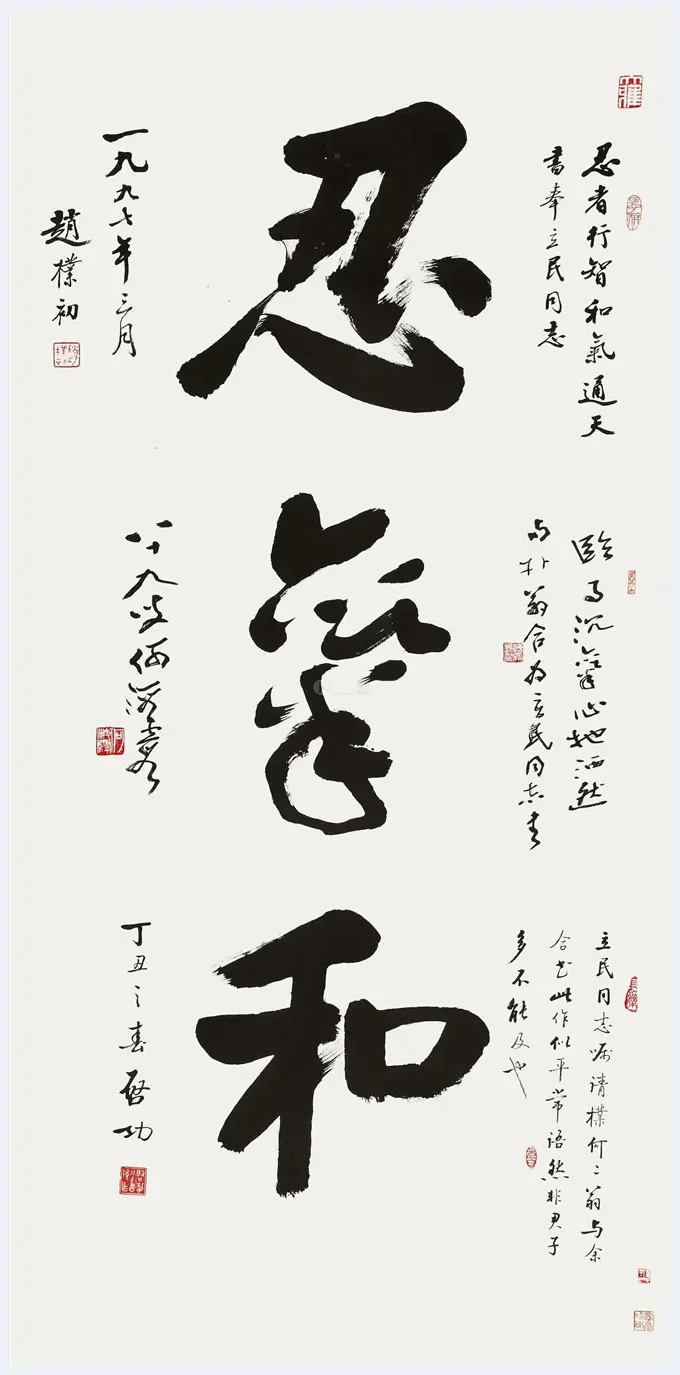 忍者行智和氣通天
書奉立民同志
忍
一九九七年三月
趙樸初
臨事沉氣心地洒然
与朴翁合为立民同志书
氣
八十九叟何海霞
立民同志嘱请樸何二翁与余
合书此作似平常语然非君子
多不能及也
和
丁丑之春啓功